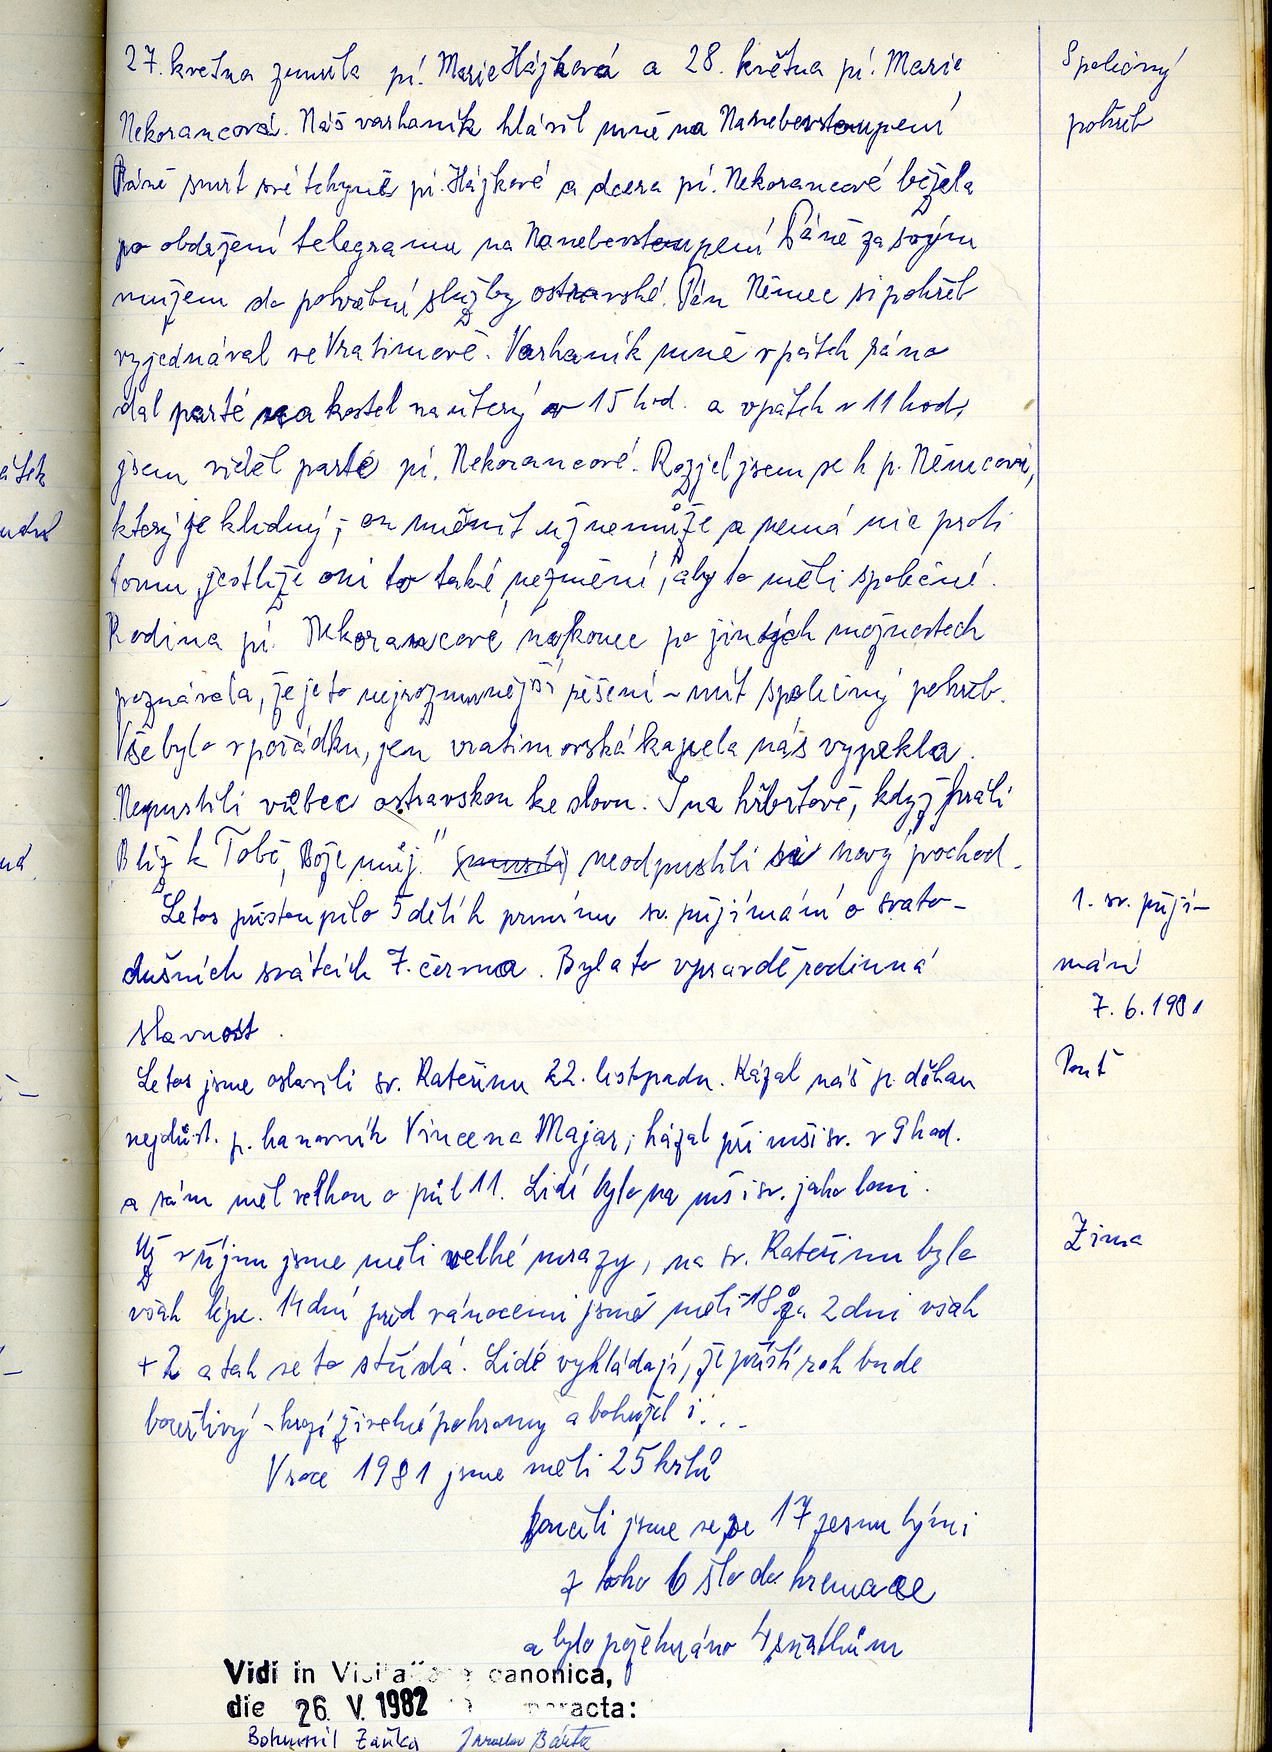 27. května zemřela pí. Marie Hájková a 28. května pí. Marie
Společný
Nekorancová. Náš varhaník hlásil mně na Nanebevstoupení
pohřeb
Páně smrt své tchyně pí. Hájkové a dcera pí. Nekorancové běžela
po obdržení telegramu na Nanebevstoupení Páně za svým
mužem do pohřební služby ostravské. Pán Němec si pohřeb
vyjednával ve Vratimově. Varhaník mně v pátek ráno
dal parté na kostel na úterý v 15 hod. a v pátek v 11 hod.
jsem viděl parté pí. Nekorancové. Rozjel jsem se k p. Němcovi,
který je klidný; on měnit už nemůže a nemá nic proti
tomu, jestliže oni to také nezmění, aby to měli společné.
Rodina pí. Nekorancové nakonec po jiných možnostech
poznávala, že je to nejrozumnější řešení - mít společný pohřeb.
Vše bylo v pořádku, jen vratimovská kapela nás vypekla.
Nepustili vůbec ostravskou ke slovu. I na hřbitově, když hráli
"Blíž k Tobě, Bože můj" neodpustili si nový pochod.
Letos přistoupilo 5 dětí k prvnímu sv. přijímání o svato-
1. sv. přijí-
dušních svátcích 7. června. Byla to vpravdě rodinná
mání
slavnost.
7. 6. 1981
Letos jsme oslavili sv. Kateřinu 22. listopadu. Kázal náš p. děkan
Pouť
nejdůst. p. kanovník Vincenc Majar; kázal při mši sv. v 9 hod.
a sám měl velkou o půl 11. Lidí bylo na mši sv. jako loni.
Už v říjnu jsme měli velké mrazy, na sv. Kateřinu bylo
Zima
však lépe. 14 dní před vánocemi jsme měli -18° za 2 dni však
+2 a tak se to střídá. Lidé vykládají, že příští rok bude
bouřlivý - hrozí živelné pohromy a bohužel i...
V roce 1981 jsme měli 25 křtů
loučili jsme se se 17 zesnulými
z toho 6 šlo do kremace
a bylo požehnáno 4 sňatkům
Vidi in Visitatione canonica,
die 26. V. 1982 peracta:
Bohumil Zaňka Jaroslav Bárta